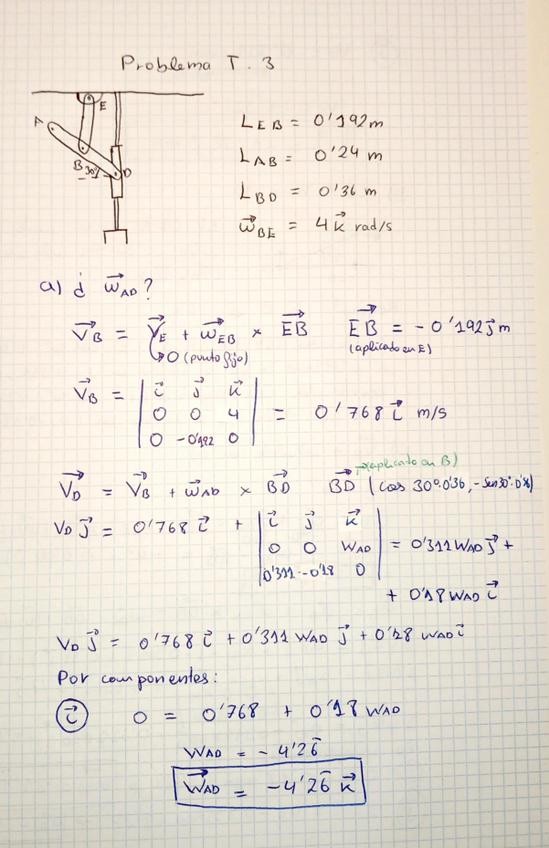 Problema T. 3
A
E
B
30°
D
L EB = 0'192m
L AB = 0'24 m
L BD = 0'36 m
ω⃗ BE = 4 k⃗ rad/s
a) ¿ ω⃗ AD?
V⃗B = V⃗E + ω⃗EB × EB⃗ EB⃗ = -0'192 j⃗ m
↳0 (punto fijo) (aplicado en E)
V⃗B = | i⃗ j⃗ k⃗ |
| 0 0 4 | = 0'768 i⃗ m/s
| 0 -0'192 0 |
(aplicado en B)
V⃗D = V⃗B + ω⃗AD × BD⃗ BD⃗ (cos 30°·0'36, -sen30°·0'36)
VD j⃗ = 0'768 i⃗ + | i⃗ j⃗ k⃗ |
| 0 0 WAD | = 0'311 WAD j⃗ +
| 0'311 -0'18 0 |
+ 0'18 WAD i⃗
VD j⃗ = 0'768 i⃗ + 0'311 WAD j⃗ + 0'18 WAD i⃗
Por componentes:
i⃗ 0 = 0'768 + 0'18 WAD
WAD = -4'26̄
W⃗AD = -4'26̄ k⃗